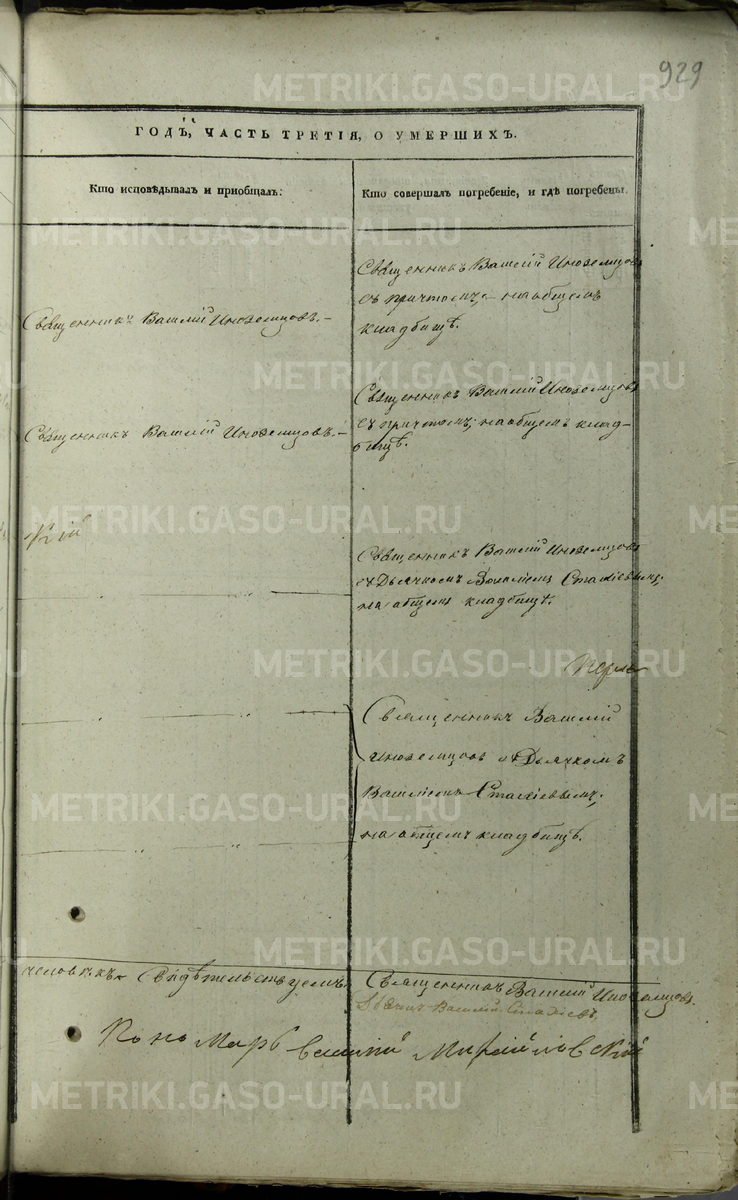 929
ГОДЪ, ЧАСТЬ ТРЕТІЯ, О УМЕРШИХЪ.
Кто исповѣдывалъ и пріобщалъ.
Кто совершалъ погребеніе, и гдѣ погребены.
Священникъ Василій Иноземцовъ
съ причтомъ на общемъ
кладбищѣ.
Священникъ Василій Иноземцовъ.
Священникъ Василій Иноземцовъ
съ причтомъ, на общемъ клад-
бищѣ.
Священникъ Василій Иноземцовъ.
кій
Священникъ Василій Иноземцовъ
съ Дьячкомъ Стахіевымъ,
на общемъ кладбищѣ.
Священникъ Василій
Иноземцовъ съ Дьячкомъ
Василіемъ Стахіевымъ,
на общемъ кладбищѣ.
человѣкъ Свидѣтельствуемъ
Священникъ Василій Иноземцовъ.
Дьячекъ Василій Стахіевъ
Пономарь
METRIKI.GASO-URAL.RU